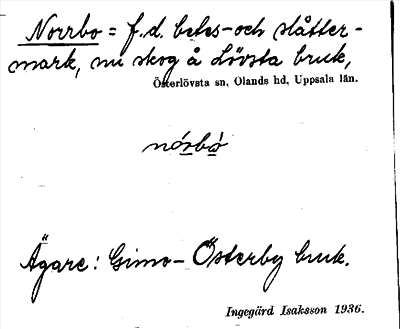 Norrbo = f.d. betes- och slåtter-
mark, nu skog å Lövsta bruk,
Österlövsta sn, Olands hd, Uppsala län.
nórbò
Ägare: Gimo-Österby bruk.
Ingegärd Isaksson 1936.